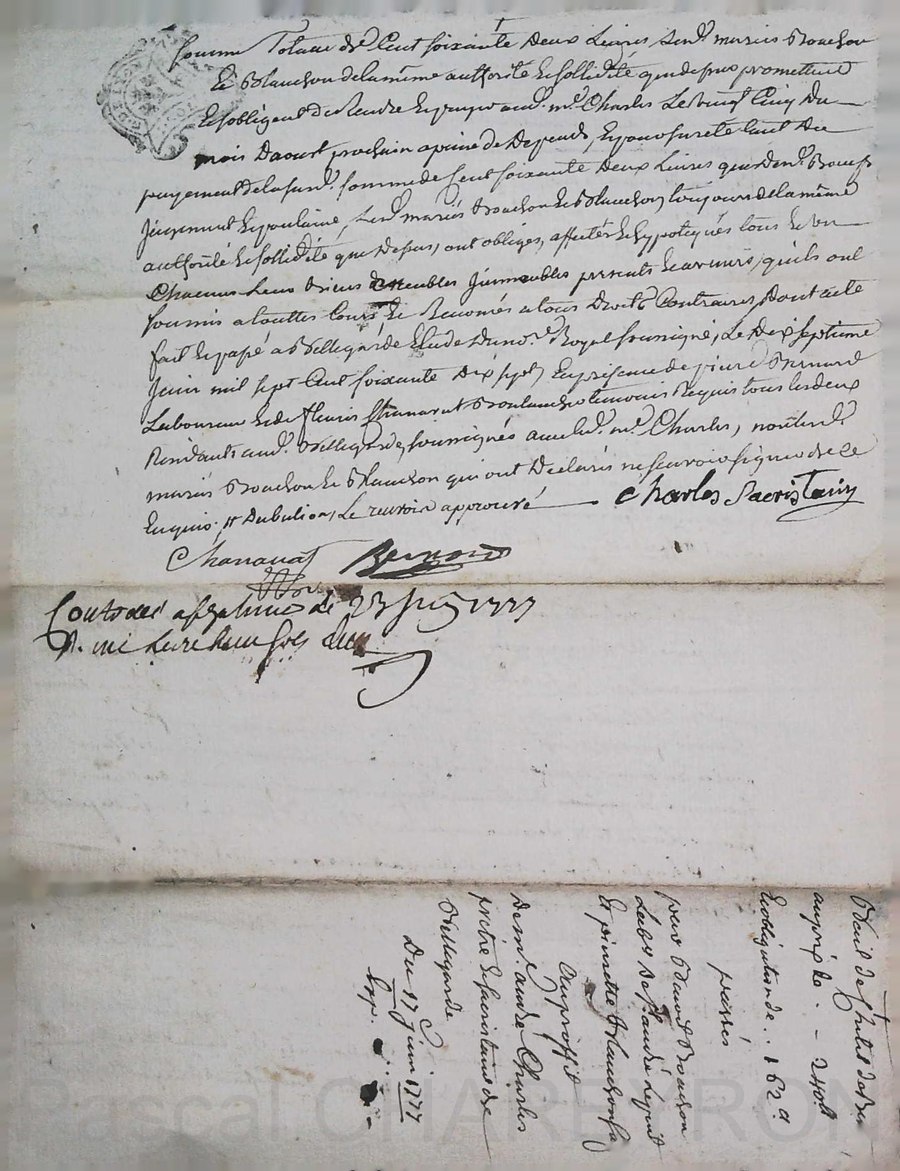 somme Totale de Cent soixante deux Livres, Lesd. mariés Brouchon
Et Blanchon de la même authorité Et sollidité que dessus promettent
Et sobligent de Rendre Et payer aud. mre. Charles Le vingt Cinq du
mois Daoust prochain a peine de Depends, Et pour sureté tant du
payement de la susd. somme de Cent soixante deux Livres que
Lesd. mariés Brouchon Et Blanchon, toujours de la même
authorité Et sollidité que Dessus, ont obligés, affectés Et hypotequés tous Et un
Chacuns Leurs Biens meubles Jmmeubles presents Et avenirs, qu'ils ont
soumis a touttes Cours, Et Renoncés a tous Droits Contraires, Dont acte
fait Et passé a Bellegarde Etude du nore. Royal soussigné, Le Dix septieme
Juin mil sept Cent soixante dix sept, En presence de pierre Bernard
Laboureur Et de fleuris Chanavat temoins Requis tous Les deux
Residants aud. Bellegarde, soussignés avec led. mre. Charles, non Lesd.
mariés Brouchon Et Blanchon qui ont Declarés ne scavoir signer de ce
Enquis. approuvé Charles Sacristain
Chanavat Bernard
Controllé a st galmier Le 23 Juin 1777
R. une Livre sols
Bail de
au prix de - 240ll
Et obligation de .. 162ll
passés
par Brouchon
Labr de St. andré Le puit
Et pierrette Blanchon sa
Au proffit
De mre. andré Charles
pretre Et sacristain de
Bellegarde
Du 17 Juin 1777
Exp.
Pascal CHAREYRON